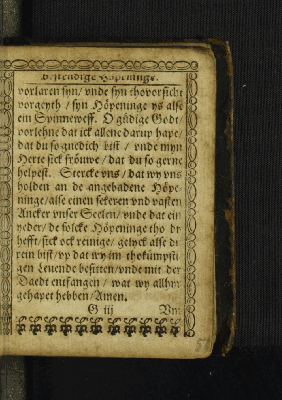 bestendige Höpeninge.
vorlaren syn/ vnde syn thovorsicht
vorgeyth/ syn Höpeninge ys alse
ein Spinneweff. O gůdige Godt/
vorlehne dat ick allene darup hape/
dat du so gnedich bist/ vnde myn
Herte sick fröuwe/ dat du so gerne
helpest. Stercke vns/ dat wy vns
holden an de angebadene Höpe-
ninge/ alse einen sekeren vnd vasten
Ancker vnser Seelen/ vnde dat ein
yeder/ de solcke Höpeninge tho dy
hefft/ sick ock reinige/ gelyck alse du
rein bist/ vp dat wy im thokümpsti-
gen Leuende besitten/ vnde mit der
Daedt entfangen/ wat wy allhyr
gehapet hebben/ Amen.
G iij